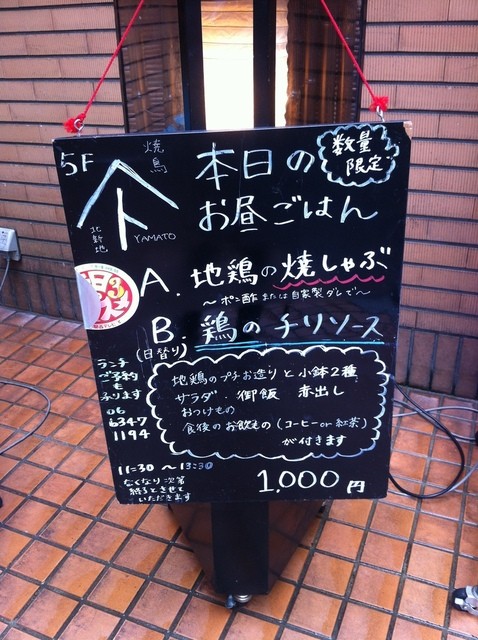 5F
焼鳥
ト
北新地
YAMATO
本日の
お昼ごはん
数量
限定
A. 地鶏の焼しゃぶ
～ポン酢または自家製ダレで～
B. 鶏のチリソース
(日替り)
地鶏のプチお造りと小鉢2種
サラダ 御飯 赤出し
おつけもの
食後のお飲もの(コーヒーor紅茶)
が付きます
ランチ
ご予約
も
承ります
06
6347
1194
11:30～13:30
なくなり次第
終了とさせて
いただきます
1,000円